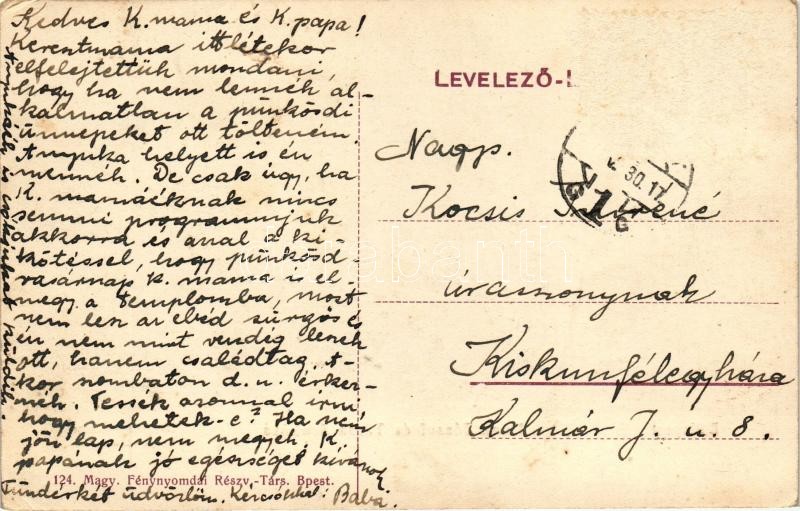 Kedves K. mama és K. papa!
Keresztmama ittlétekor
elfelejtettük mondani,
hogy ha nem lennék al-
kalmatlan a pünkösdi
ünnepeket ott tölteném.
Anyuka helyett is én
mennék. De csak úgy, ha
K. mamáéknak nincs
semmi programmjuk
akkorra és azzal a ki-
kötéssel, hogy pünkösd-
vasárnap K. mama is el-
megy a templomba, mert
nem lesz az ebéd sürgős és
én nem mint vendég leszek
ott, hanem családtag. A-
kor szombaton d. u. érkez-
nék. Tessék azonnal írni
hogy mehetek-e? Ha nem
jön lap, nem megyek. K.
papának jó egészséget kívánok
Tündérkét üdvözlöm. Kézcsókkal: Baba.
Anyukáék is csókjukat küldik.
124. Magy. Fénynyomdai Részv.-Társ. Bpest.
LEVELEZŐ-L
30. 17
Nagys.
Kocsis
úrasszonynak
Kiskunfélegyháza
Kalmár J. u. 8.